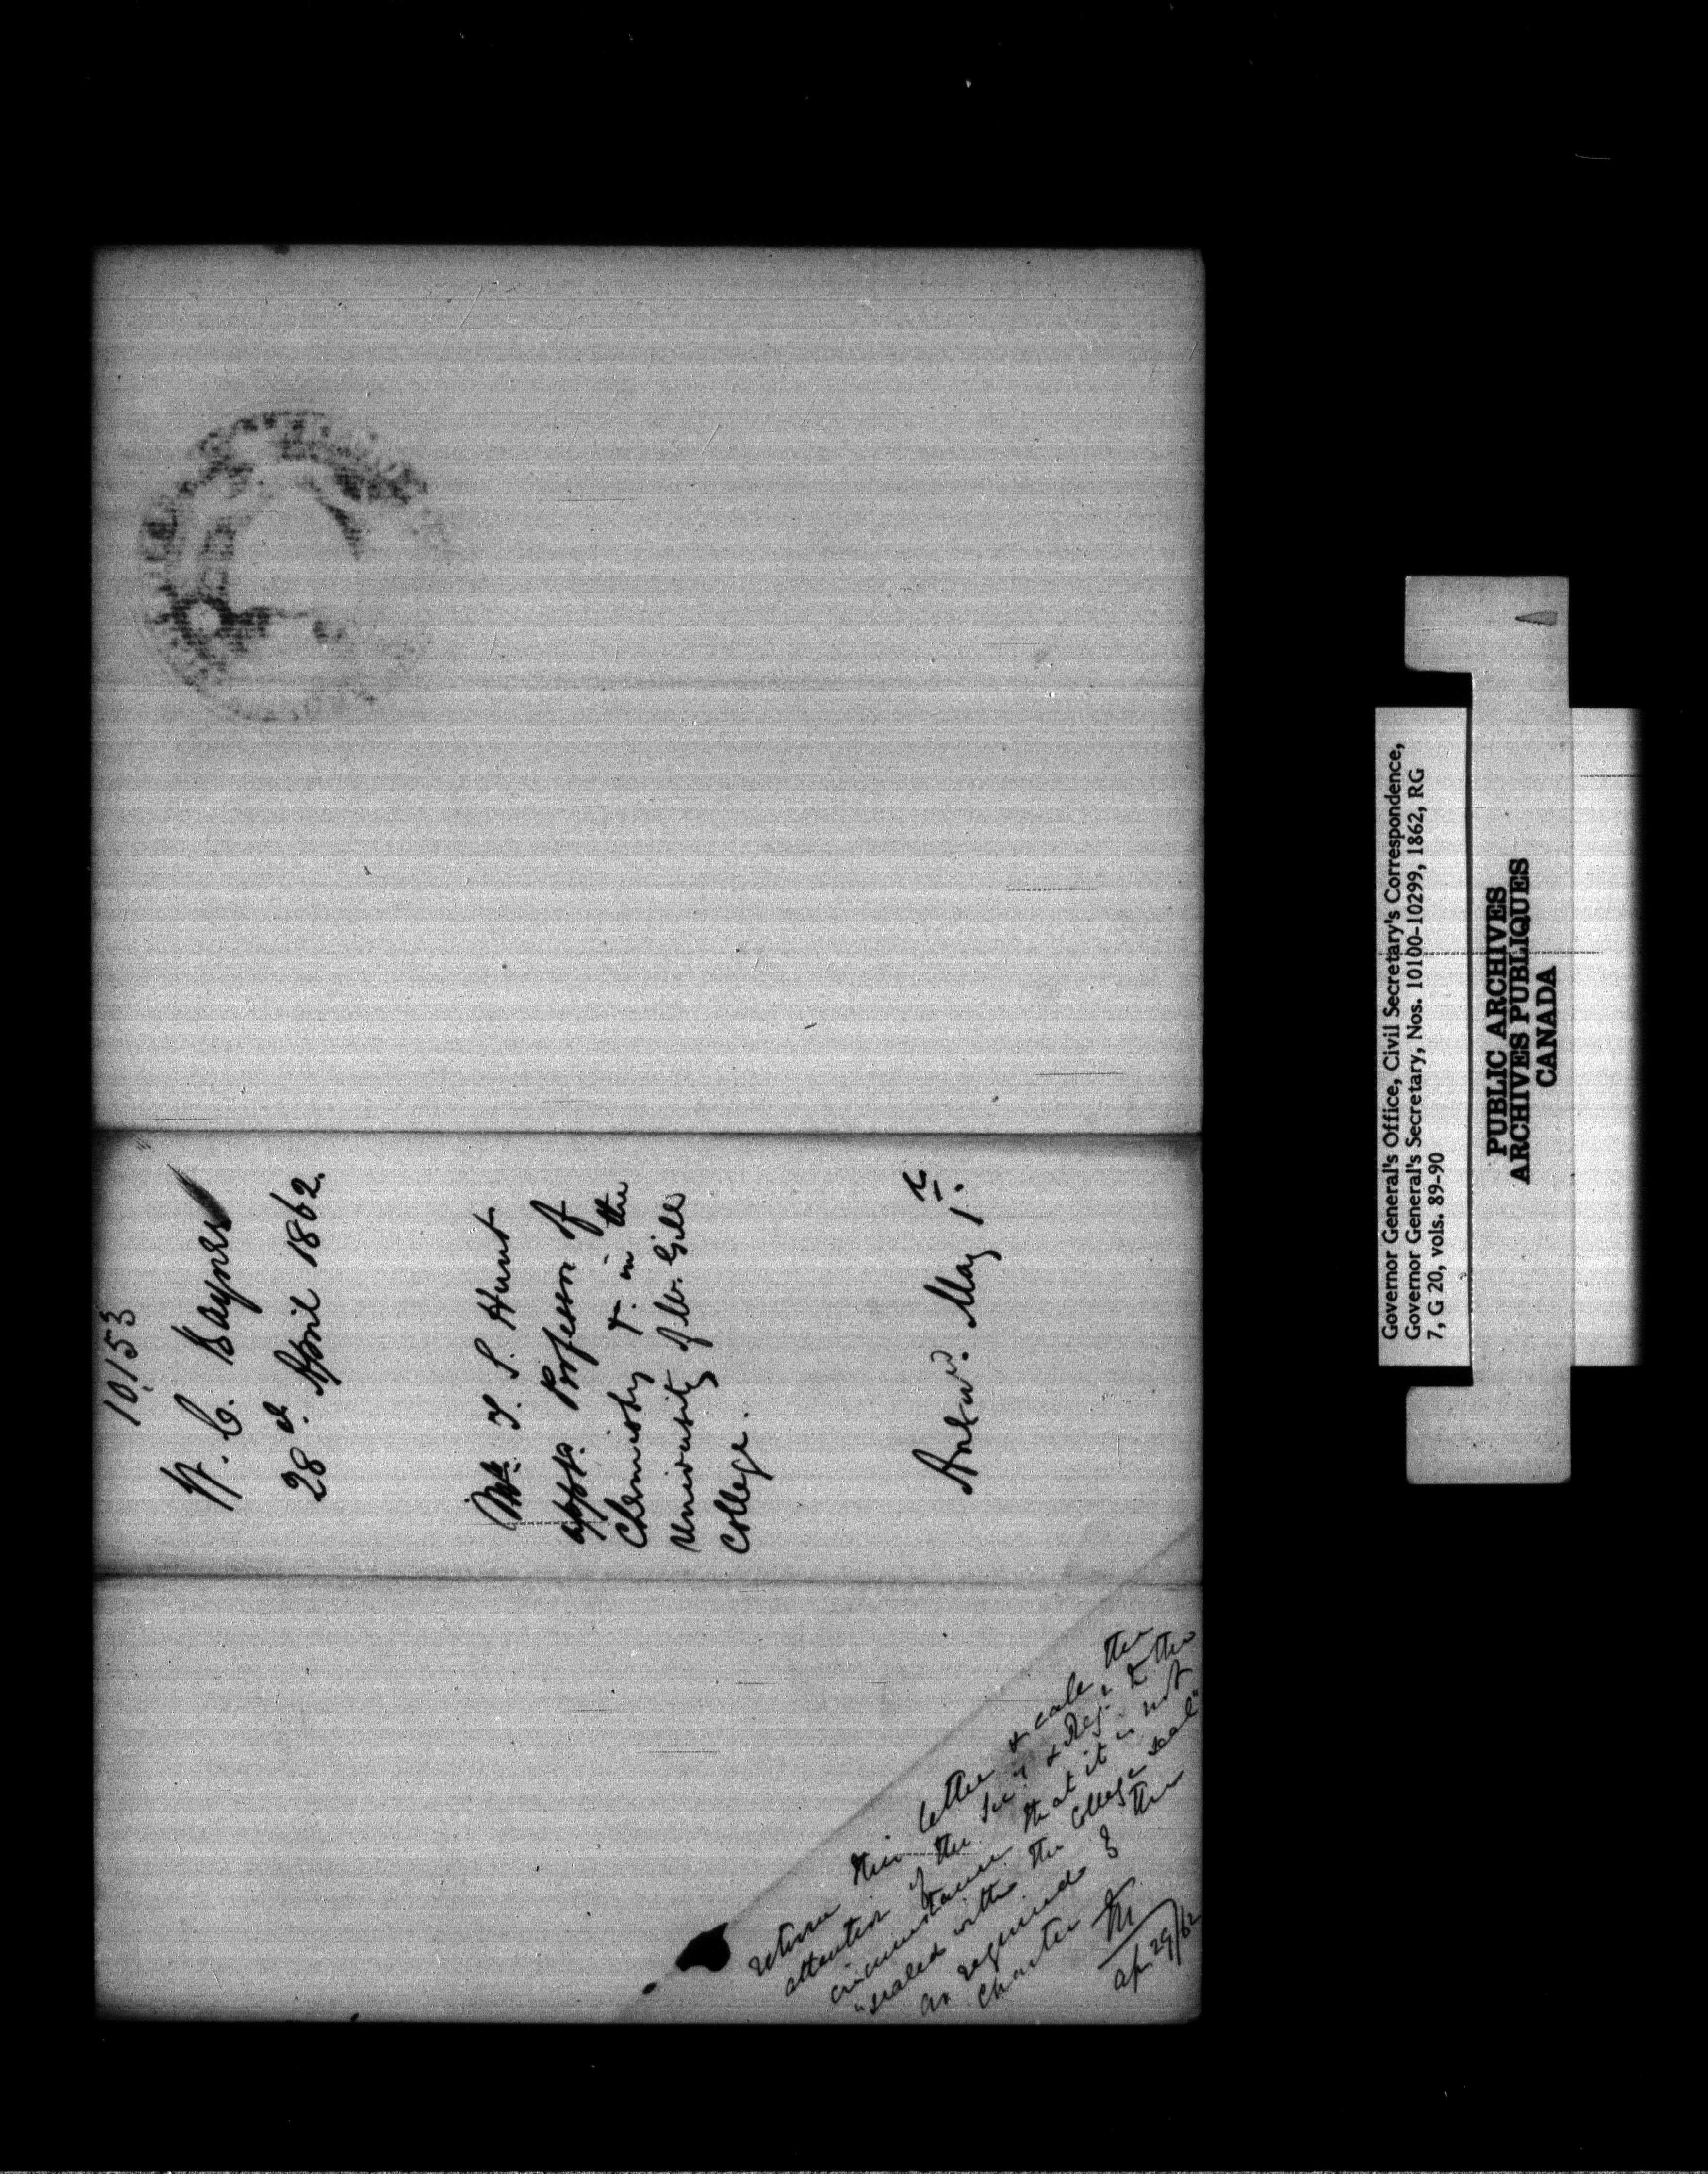 10153
W. C. Baynes
28th. April 1862.
Mr. T. S. Hunt
appt. Professor of
Chemistry &c. in the
University of Mc.Gill
College.
Answd. May 1st.
return this letter & call the
attention of the Secy & Regr. to the
circumstance that it is not
"sealed with the College seal"
as required by the
Charter
Ap 29/62
Governor General's Office, Civil Secretary's Correspondence,
Governor General's Secretary, Nos. 10100-10299, 1862, RG
7, G 20, vols. 89-90
PUBLIC ARCHIVES
ARCHIVES PUBLIQUES
CANADA